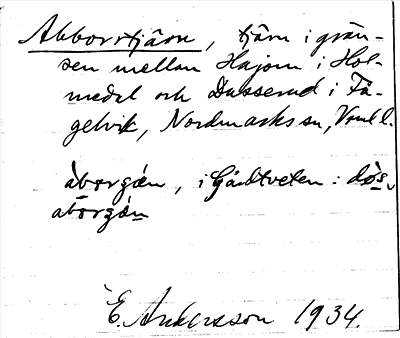 Abborrtjärn, tjärn i grän-
sen mellan Hajom i Hol-
medal och Dusserud i Få-
gelvik, Nordmarks sn, Vrml l.
àbɷrgǽn, i Gårdtveten: dø̀s,
abɷrgǽn
E. Andersson 1934.